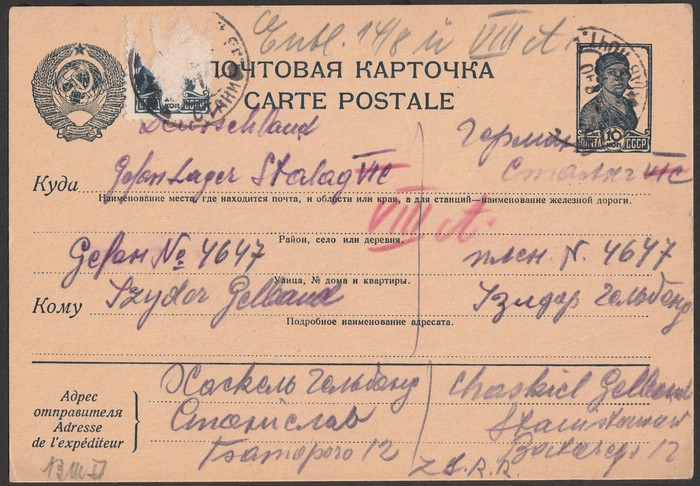 Entl. 14/8 и VIII A.
ПОЧТОВАЯ КАРТОЧКА
CARTE POSTALE
ПОЧТА 10 КОП СССР
Deutschland
Герман
Куда
Gefan Lager Stalag VII C
Сталаг VII C
Наименование места, где находится почта, и области или края, а для станций—наименование железной дороги.
VIII A.
Район, село или деревня.
Gefan № 4647
плен. N. 4647
Улица, № дома и квартиры.
Кому
Izydor Gelband
Изидор Гельбанд
Подробное наименование адресата.
Адрес
отправителя
Adresse
de l'expéditeur
Хаскель Гельбанд
Chaskiel Gelband
Станіслав
Stanisławów
12
12
Z.S.R.R.